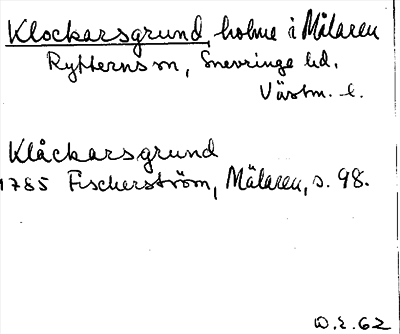 Klockarsgrund, holme i Mälaren
Rytterns sn, Snevringe hd.
Västm. l.
Klåckarsgrund
1785 Fischerström, Mälaren, s. 98.
D.E. 62